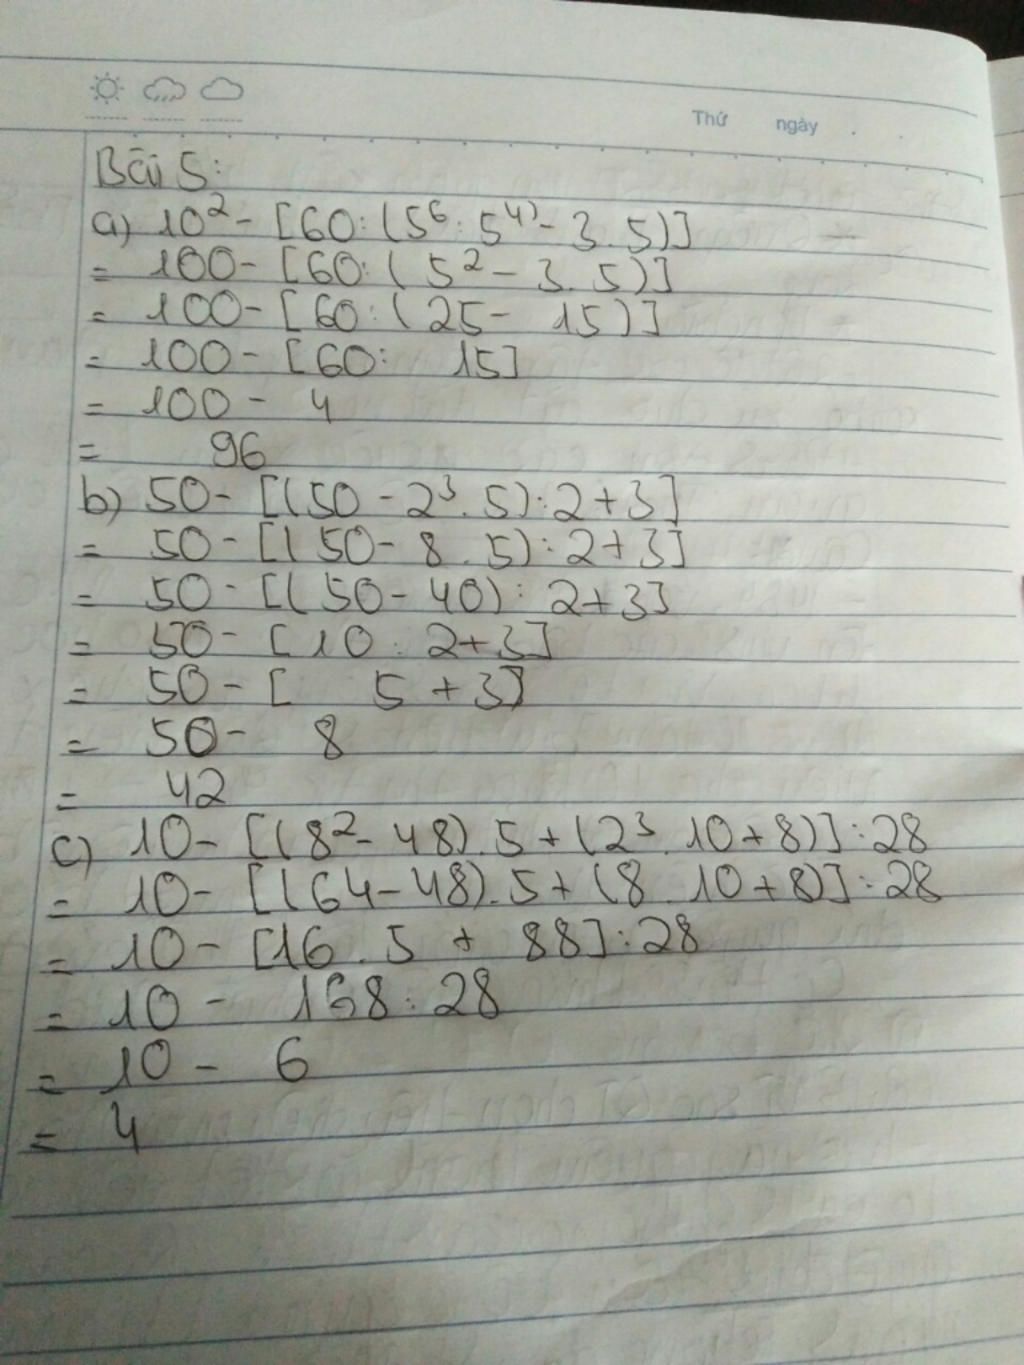 Thứ ngày . .
Bài 5:
a) 10² - [60 : (5⁶ : 5⁴⁾ - 3 . 5)]
= 100 - [60 : ( 5² - 3 . 5)]
= 100 - [60 : (25 - 15)]
= 100 - [60 : 15]
= 100 - 4
= 96
b) 50 - [(50 - 2³ . 5) : 2 + 3]
= 50 - [(50 - 8 . 5) : 2 + 3]
= 50 - [(50 - 40) : 2 + 3]
= 50 - [10 : 2 + 3]
= 50 - [ 5 + 3]
= 50 - 8
= 42
c) 10 - [(8² - 48) . 5 + (2³ . 10 + 8)] : 28
= 10 - [(64 - 48) . 5 + (8 . 10 + 8)] : 28
= 10 - [16 . 5 + 88] : 28
= 10 - 168 : 28
= 10 - 6
= 4